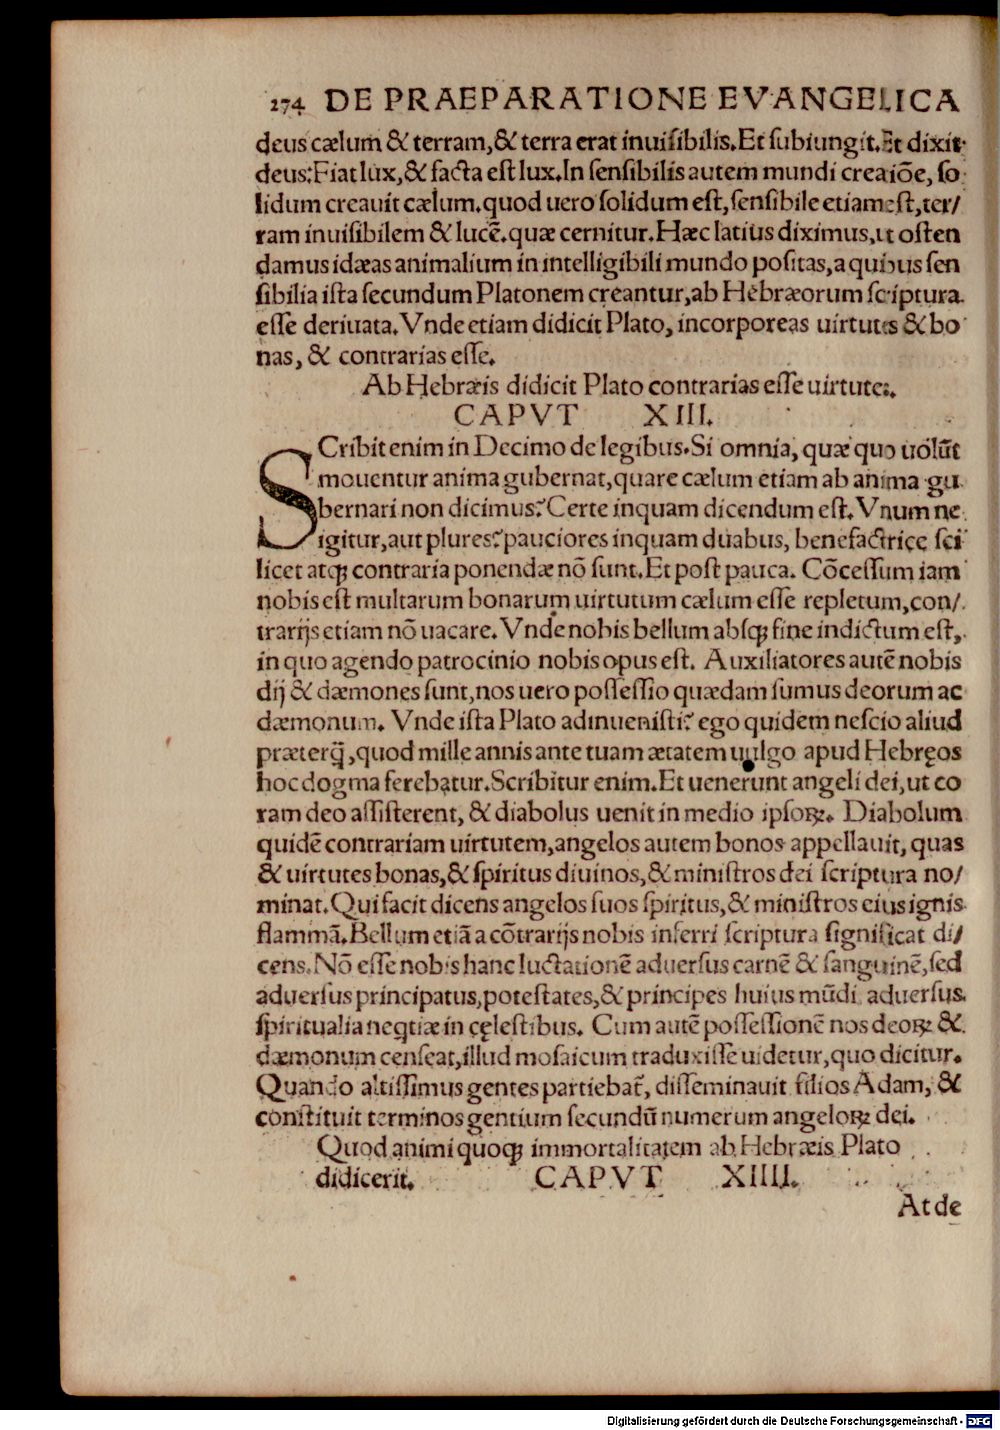 274 DE PRAEPARATIONE EVANGELICA
deus cælum & terram,& terra erat inuisibilis.Et subiungit.Et dixit
deus:Fiat lux,& facta est lux.In sensibilis autem mundi creaiõe, so
lidum creauit cælum.quod uero solidum est,sensibile etiam est,ter/
ram inuisibilem & lucẽ.quæ cernitur.Hæc latius diximus,ut osten
damus idæas animalium in intelligibili mundo positas,a quibus sen
sibilia ista secundum Platonem creantur,ab Hebræorum scriptura
esse deriuata.Vnde etiam didicit Plato, incorporeas uirtutes & bo
nas, & contrarias esse.
Ab Hebræis didicit Plato contrarias esse uirtutes.
CAPVT XIII.
SCribit enim in Decimo de legibus.Si omnia, quæ quo uolũt
mouentur anima gubernat,quare cælum etiam ab anima gu
bernari non dicimus? Certe inquam dicendum est.Vnum ne
igitur,aut plures? pauciores inquam duabus, benefactrice sci
licet atqꝫ contraria ponendæ nõ sunt.Et post pauca. Cõcessum iam
nobis est multarum bonarum uirtutum cælum esse repletum,con/
trarijs etiam nõ uacare.Vnde nobis bellum absqꝫ fine indictum est,
in quo agendo patrocinio nobis opus est. Auxiliatores autẽ nobis
dij & dæmones sunt,nos uero possessio quædam sumus deorum ac
dæmonum. Vnde ista Plato adinuenisti? ego quidem nescio aliud
præterq̃,quod mille annis ante tuam ætatem uulgo apud Hebręos
hoc dogma ferebatur.Scribitur enim.Et uenerunt angeli dei,ut co
ram deo assisterent, & diabolus uenit in medio ipsoꝝ. Diabolum
quidẽ contrariam uirtutem,angelos autem bonos appellauit, quas
& uirtutes bonas,& spiritus diuinos,& ministros dei scriptura no/
minat.Qui facit dicens angelos suos spiritus,& ministros eius ignis
flammã.Bellum etiã a cõtrarijs nobis inferri scriptura significat di/
cens.Nõ esse nobis hanc luctationẽ aduersus carnẽ & sanguinẽ,sed
aduersus principatus,potestates,& principes huius mũdi aduersus
spiritualia neq̃tiæ in cęlestibus. Cum autẽ possessionẽ nos deoꝝ &
dæmonum censeat,illud mosaicum traduxisse uidetur,quo dicitur.
Quando altissimus gentes partiebat̃, disseminauit filios Adam, &
constituit terminos gentium secundũ numerum angeloꝝ dei.
Quod animi quoqꝫ immortalitatem ab Hebræis Plato
didicerit. CAPVT XIIII.
At de
Digitalisierung gefördert durch die Deutsche Forschungsgemeinschaft - DFG